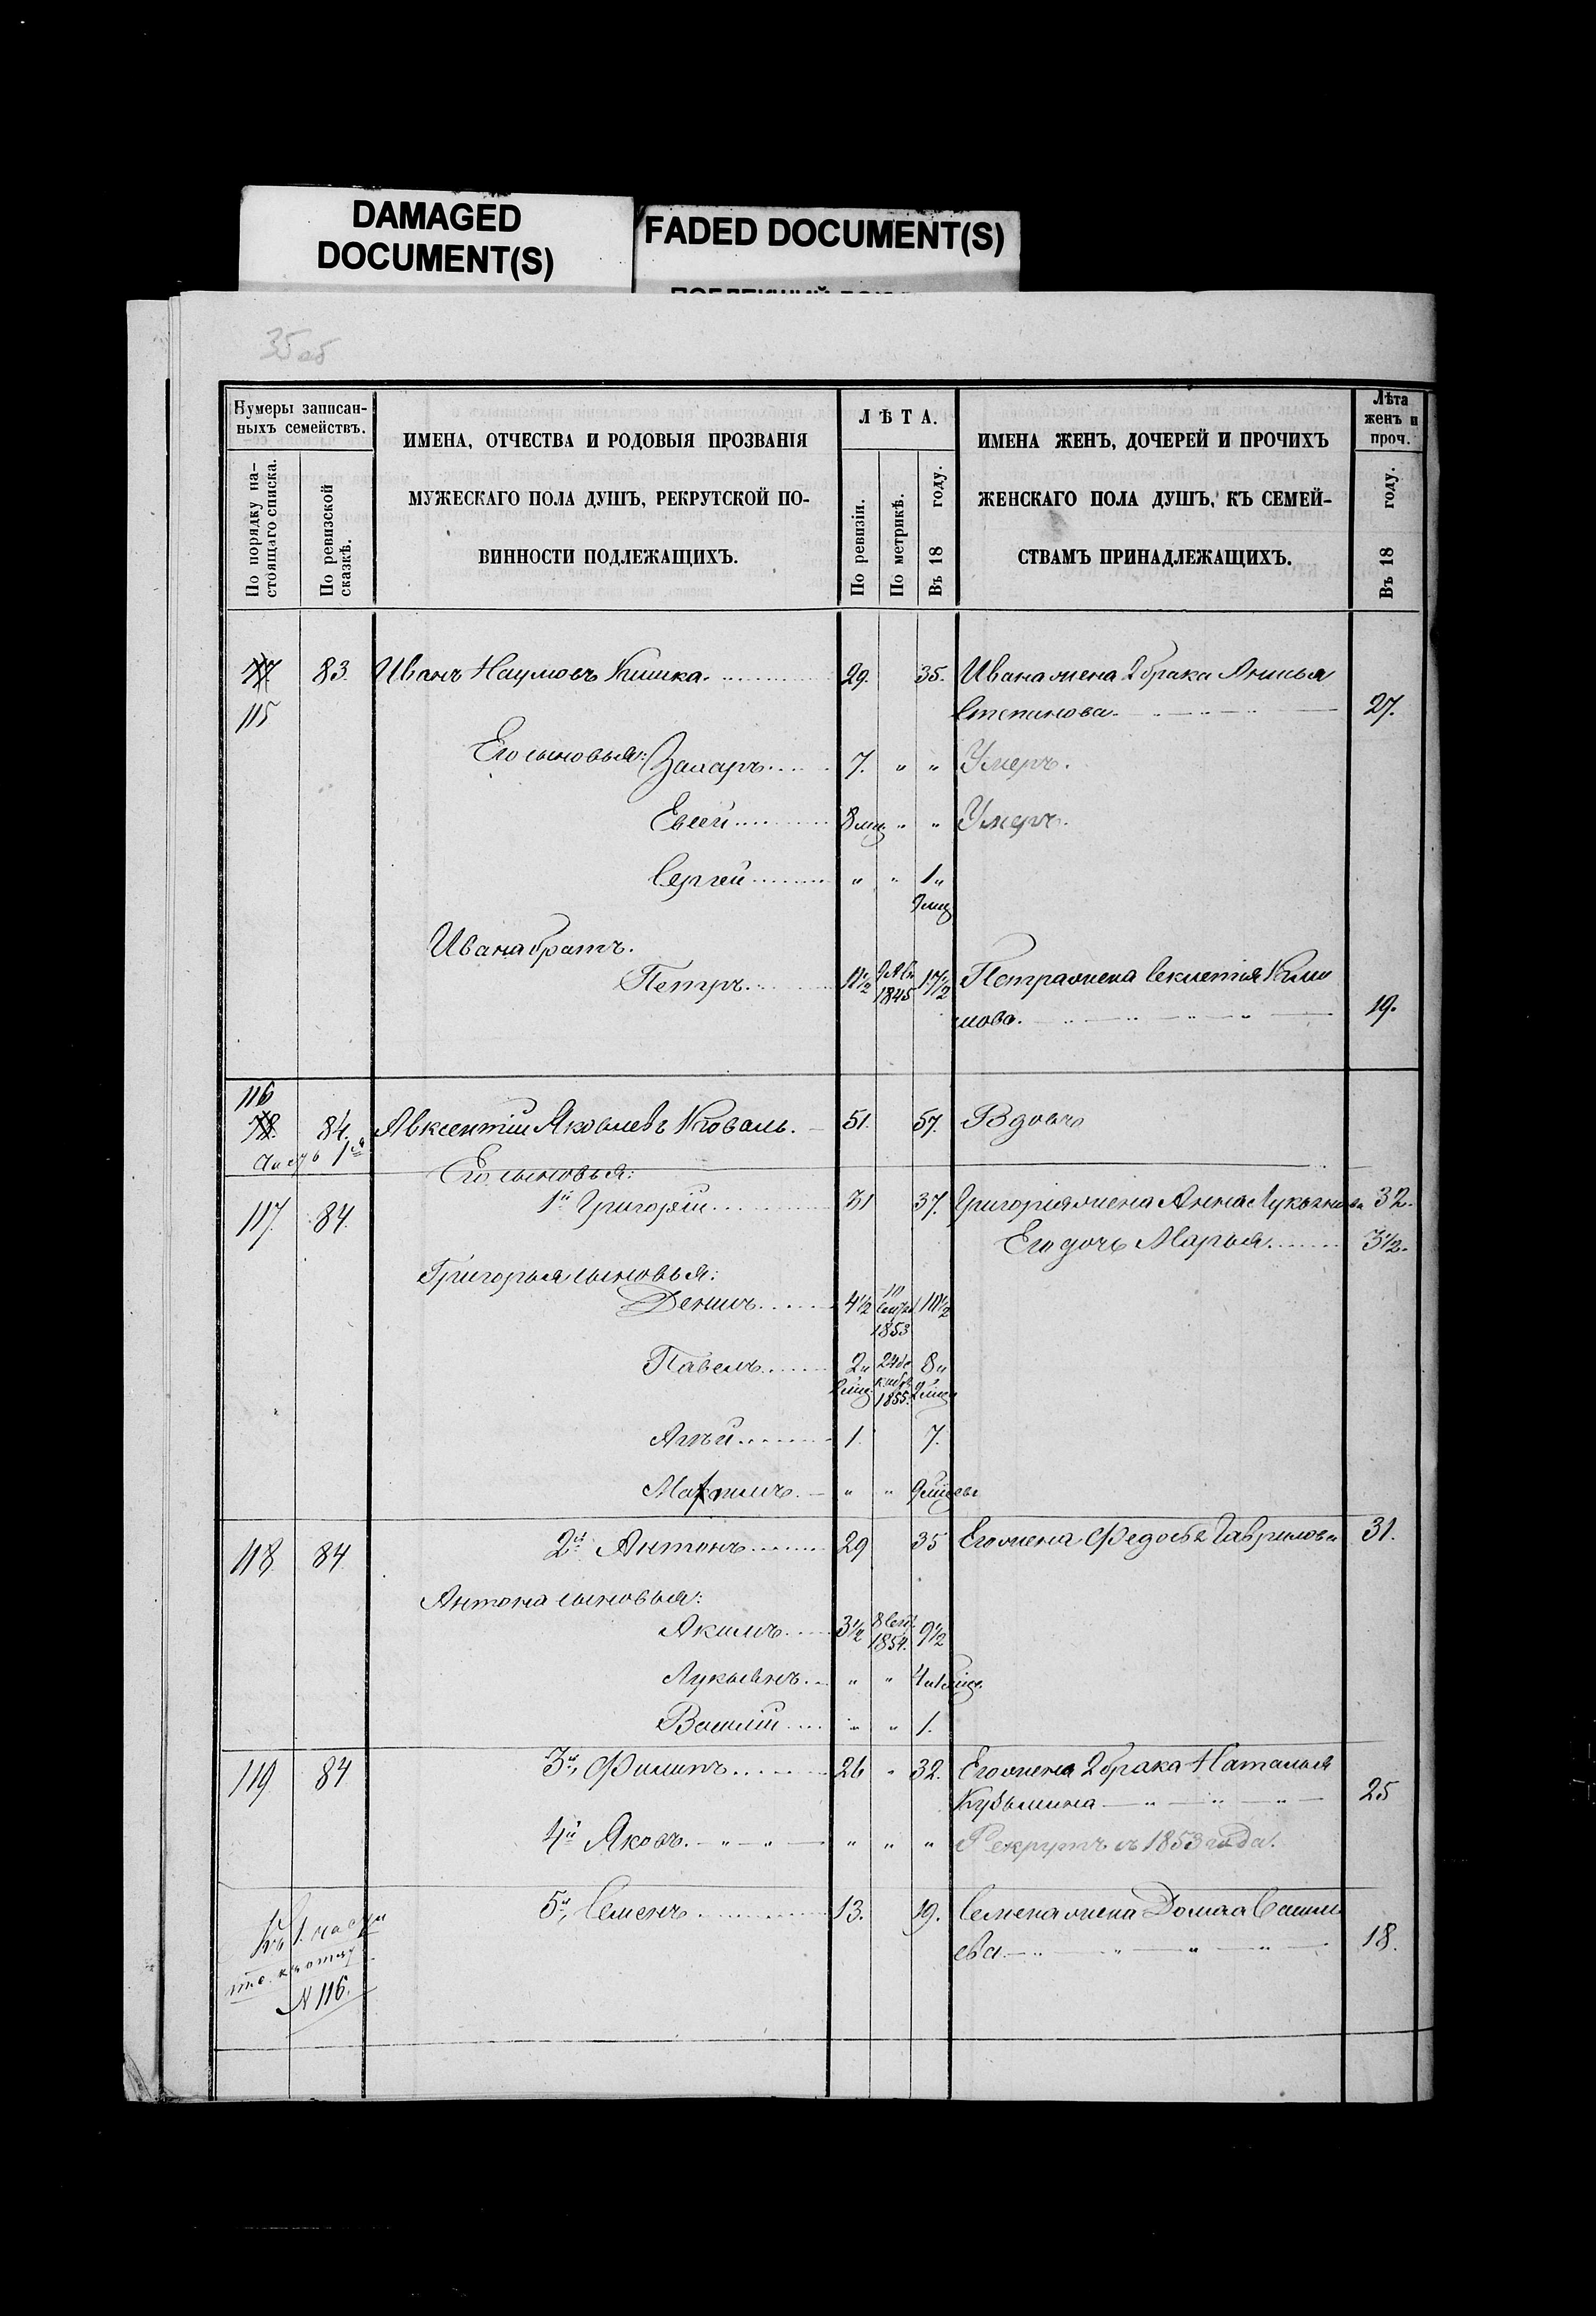 DAMAGED
DOCUMENT(S)
FADED DOCUMENT(S)
35 об
Нумеры записан-
ныхъ семействъ.
По порядку на-
стоящаго списка.
По ревизской
сказкѣ.
ИМЕНА, ОТЧЕСТВА И РОДОВЫЯ ПРОЗВАНІЯ
МУЖЕСКАГО ПОЛА ДУШЪ, РЕКРУТСКОЙ ПО-
ВИННОСТИ ПОДЛЕЖАЩИХЪ.
ЛѢТА.
По ревизіи.
По метрикѣ.
Въ 18 году.
ИМЕНА ЖЕНЪ, ДОЧЕРЕЙ И ПРОЧИХЪ
ЖЕНСКАГО ПОЛА ДУШЪ, КЪ СЕМЕЙ-
СТВАМЪ ПРИНАДЛЕЖАЩИХЪ.
Лѣта
женъ и
проч.
Въ 18 году.
77 83. Иванъ Наумовъ Кишка. 29. 35. Ивана жена 2 брака Анисья
115 Степанова. 27.
Его сыновья: Захаръ 7. " " Умеръ.
Евсей 8 мц " " Умеръ.
Сергей " " 1"
2 мц
Ивана братъ.
Петръ 11½ 1845 17½ Петра жена Секлетія Кли
мова. 19.
116
78. 84. Авксентій Яковлевъ Коваль. 51. 57. Вдовъ
Часть 1я
Его сыновья:
117. 84. 1й Григорій 31 37. Григорія жена Анна Лукьянова 32.
Его дочь Марья 3½.
Григорья сыновья:
Денисъ 4½ 10½
1853
Павелъ 2" 24 де 8"
2 мц. кабр. 2 мц
1855.
Агѣй 1. 7.
Максимъ " " 9 мцсы
118. 84. 2й Антонъ 29 35 Его жена Федосья Гаврилова 31.
Антона сыновья:
Акимъ 3½ 8 Сент. 9½
1854.
Лукьянъ " "
Василій " " 1.
119 84 3й, Филипъ 26 " 32. Его жена 2 брака Наталья
Кузьмина 25
4й Яковъ. " " " Рекрутъ съ 1853 года.
5й, Семенъ 13. 19. Семена жена Домна Василь
ева 18.
Къ 1 части
N 116.